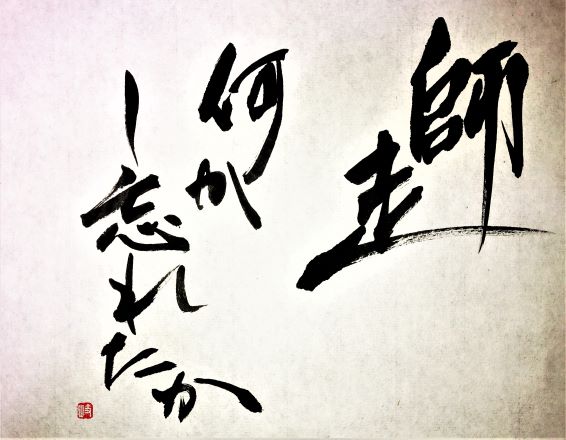 師走
何か
し忘れたか